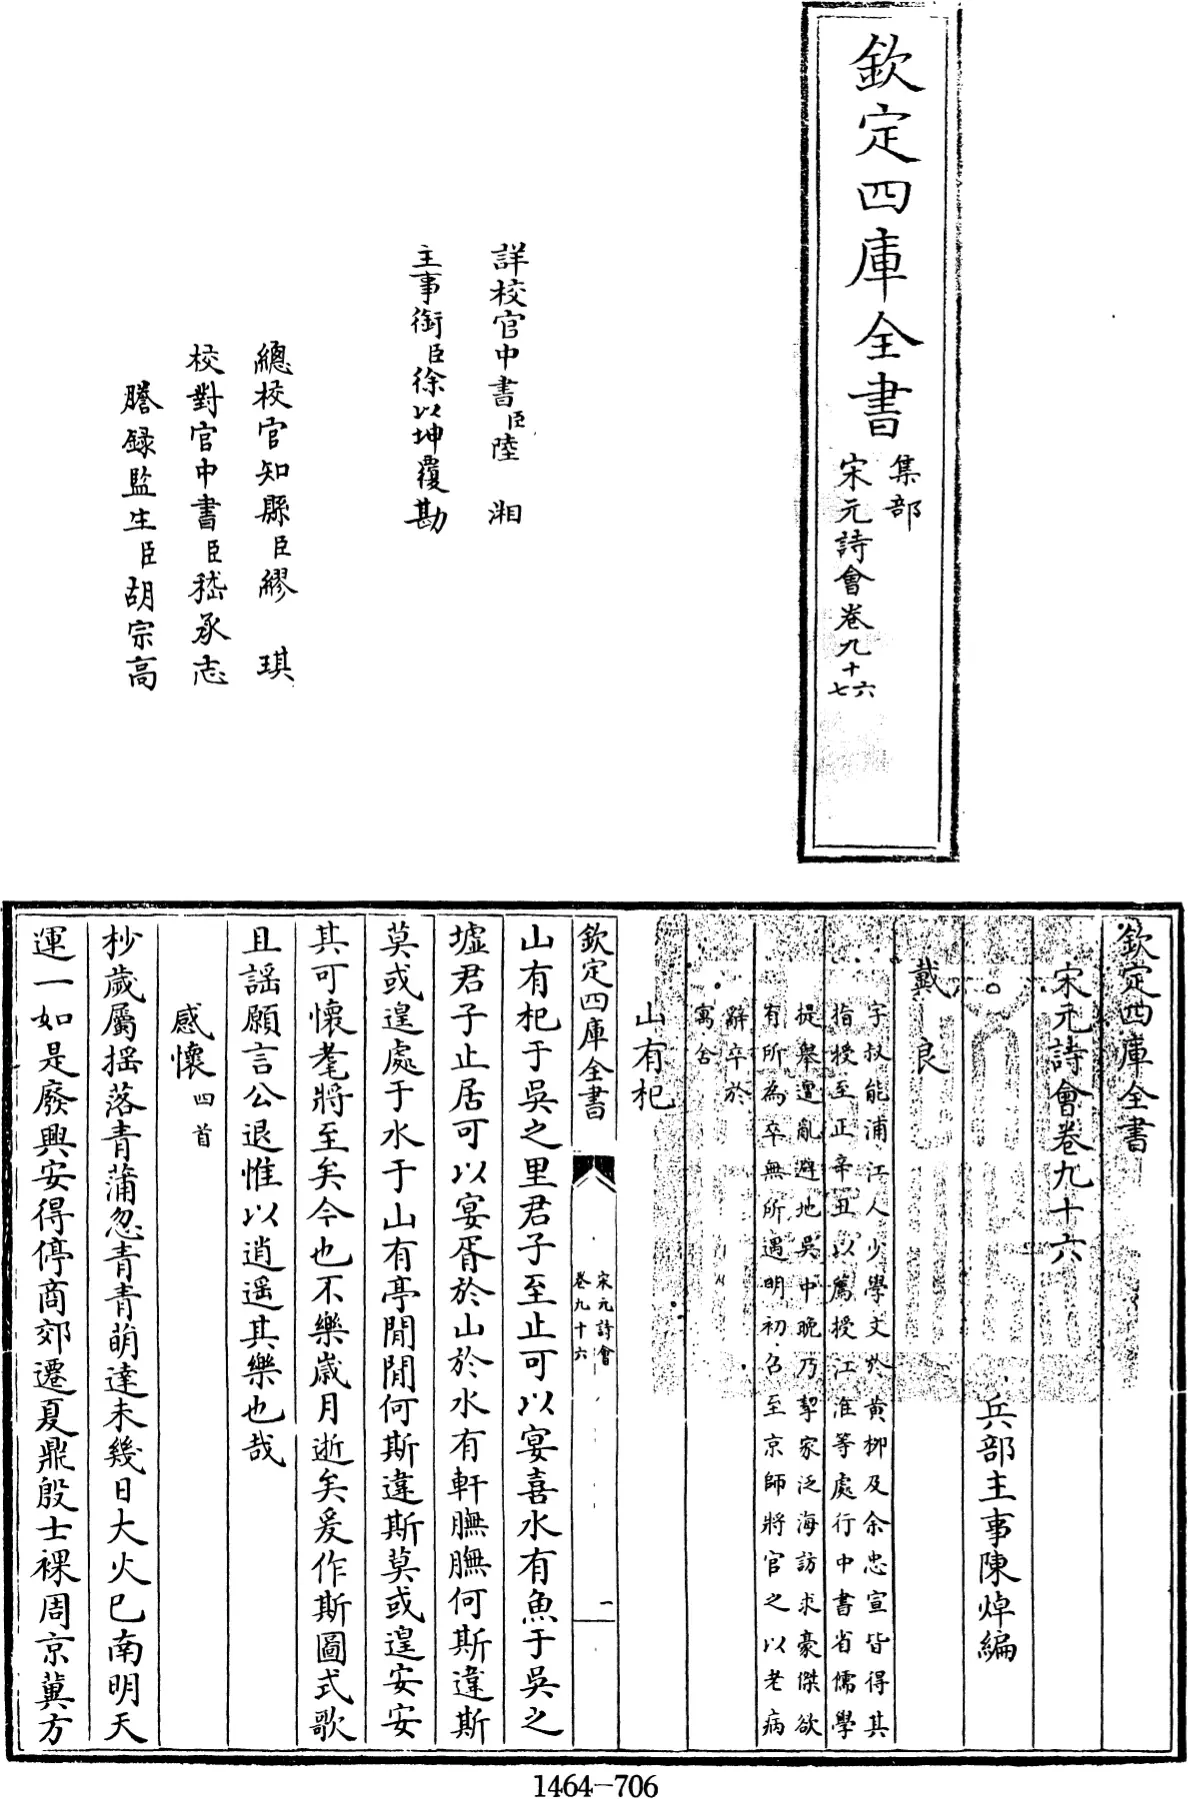 欽定四庫全書
集部
宋元詩會卷九十六
七
詳校官中書臣陸湘
主事銜臣徐以坤覆勘
總校官知縣臣繆琪
校對官中書臣嵇承志
謄錄監生臣胡宗高
欽定四庫全書
宋元詩會卷九十六
兵部主事陳焯編
戴良
字叔能浦江人少學文於黄柳及余忠宣皆得其
指授至正辛丑以薦授江淮等處行中書省儒學
提舉遭亂避地吳中晚乃挈家泛海訪求豪傑欲
有所為卒無所遇明初召至京師將官之以老病
辭卒於
寓舍
山有杞
欽定四庫全書
宋元詩會
卷九十六
一
山有杞于吳之里君子至止可以宴喜水有魚于吳之
墟君子止居可以宴胥於山於水有軒膴膴何斯違斯
莫或遑處于水于山有亭閒閒何斯違斯莫或遑安安
其可懷耄將至矣今也不樂歲月逝矣爰作斯圖式歌
且謡願言公退惟以逍遥其樂也哉
感懷四首
杪歲屬揺落青蒲忽青青萌達未幾日大火已南明天
運一如是廢興安得停商郊遷夏鼎殷士祼周京冀方
1464-706